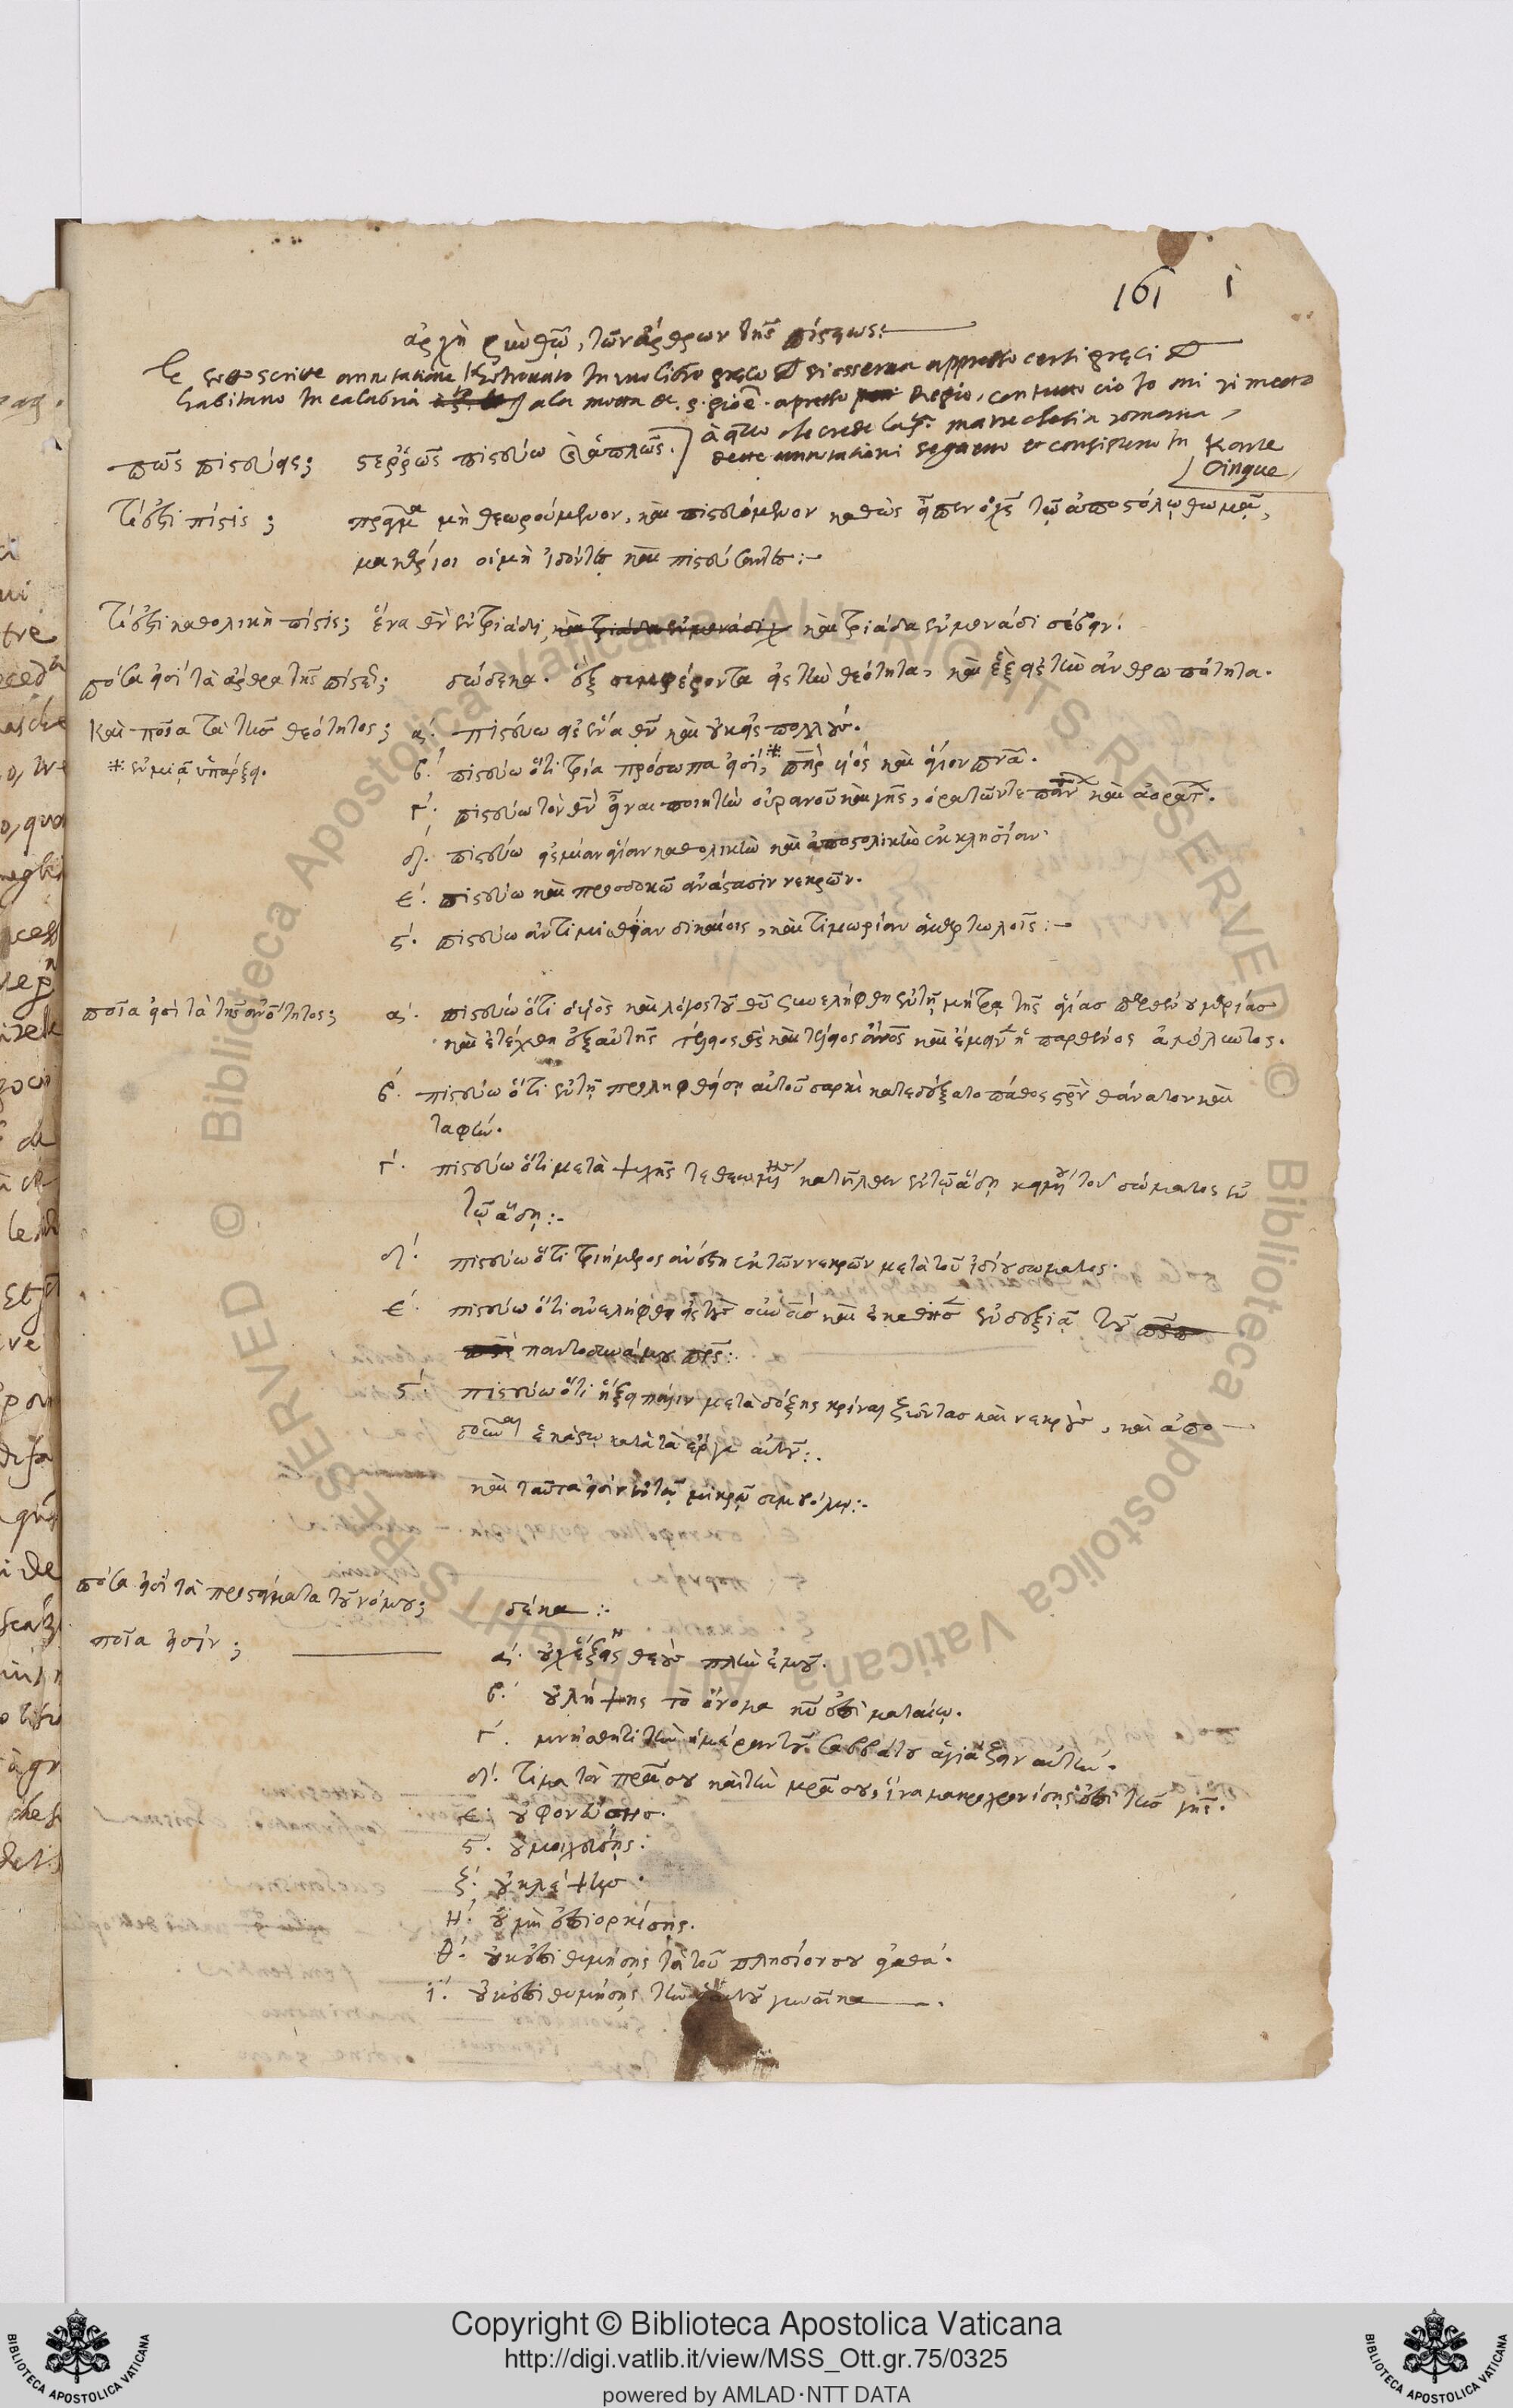 161 1
ἀρχὴ σὺν θεῷ, τῶν ἄρθρων τῆς πίστεως:
le sottoscritte annotatione ho trovato In uno libro greco si osserva appresso certi greci
habitano In calabria ala motta de s. gioe. apresso Regio, con tutto cio Io mi rimetto
à q̃llo che crede la s. matre chesia romana,
dette annotationi seguono et consisteno In Karte
Cinque
πῶς πιστεύεις; στερρῶς πιστεύω καὶ ἁπλῶς.
Τί ἐστι πίστις; πρᾶγμα μὴ θεωρούμενον, καὶ πιστευόμενον καθὼς εἶπεν ὁ χς τῷ ἀποστόλῳ θωμᾷ,
μακάριοι οἱ μὴ ἰδόντες καὶ πιστεύσαντες:-
Τί ἐστι καθολικὴ πίστις; ἕνα θν ἐν τριάδι, καὶ τριάδα ἐν μονάδι καὶ τριάδα ἐν μονάδι σέβειν.
πόσα εἰσὶ τὰ ἄρθρα τῆς πίστεως; δώδεκα. ἓξ συμφέροντα εἰς τὴν θεότητα, καὶ ἓξ εἰς τὴν ἀνθρωπότητα.
Καὶ ποῖα τὰ τῆς θεότητος; α. πιστεύω εἰς ἕνα θν καὶ οὐκ εἰς πολλούς.
* ἐν μιᾷ ὑπάρξει. β. πιστεύω ὅτι τρία πρόσωπα εἰσί,* πηρ υἱός καὶ ἅγιον πνα.
γ. πιστεύω τὸν θν εἶναι ποιητὴν οὐρανοῦ καὶ γῆς, ὁρατῶν τε πάντων καὶ ἀοράτων.
δ. πιστεύω εἰς μίαν ἁγίαν καθολικὴν καὶ ἀποστολικὴν ἐκκλησίαν.
ε. πιστεύω καὶ προσδοκῶ ἀνάστασιν νεκρῶν.
ς. πιστεύω ἀντιμισθίαν δικαίοις, καὶ τιμωρίαν ἁμαρτωλοῖς:-
ποῖα εἰσὶ τὰ τῆς ἀνότητος; α. πιστεύω ὅτι ὁ υἱὸς καὶ λόγος τοῦ θυ συνελήφθη ἐν τῇ μήτρᾳ τῆς ἁγίας παρθένου μαρίας
καὶ ἐτέχθη ἐξ αὐτῆς τέλειος θς καὶ τέλειος ἄνος καὶ ἔμεινεν ἡ παρθένος ἀμόλυντος.
β. πιστεύω ὅτι ἐν τῇ προσληφθείσῃ αὐτοῦ σαρκὶ κατεδέξατο πάθος στρὸν θάνατον καὶ
ταφήν.
γ. πιστεύω ὅτι μετὰ ψυχῆς τεθεωμένης κατῆλθεν ἐν τῷ ἅδῃ τοῦ σώματος ἐν
τῷ ἅδῃ:-
δ. πιστεύω ὅτι τριήμερος ἀνέστη ἐκ τῶν νεκρῶν μετὰ τοῦ ἰδίου σώματος.
ε. πιστεύω ὅτι ἀνελήφθη εἰς τοὺς οὐνούς καὶ ἐκάθισεν ἐν δεξιᾷ τοῦ
παντοδυνάμου πρς:
ς. πιστεύω ὅτι ἥξει πάλιν μετὰ δόξης κρῖναι ζῶντας καὶ νεκρούς, καὶ ἀπο
δοῦναι ἑκάστῳ κατὰ τὰ ἔργα αὐτοῦ:.
καὶ ταῦτα εἰσὶν ἐν τῷ μικρῷ συμβόλῳ:-
πόσα εἰσὶ τὰ προστάγματα τοῦ νόμου; δέκα:-
ποῖα εἰσίν; α. οὐχ ἕξεις θεοὺς πλὴν ἐμοῦ.
β. οὐ λήψης τὸ ὄνομα κυ ἐπὶ ματαίῳ.
γ. μνήσθητι τὴν ἡμέραν τοῦ σαββάτου ἁγιάζειν αὐτήν.
δ. τίμα τὸν πρα σου καὶ τὴν μρα σου, ἵνα μακροχρονίσης ἐπὶ τῆς γῆς.
ε. οὐ φονεύσης.
ς. οὐ μοιχεύσης:
ζ. οὐ κλέψεις.
η. οὐ μὴ ἐπιορκίσης.
θ. οὐκ ἐπιθυμήσης τὰ τοῦ πλησίον σου ἀγαθά.
ι. οὐκ ἐπιθυμήσης τὴν αὐτοῦ γυναῖκα
Copyright © Biblioteca Apostolica Vaticana
http://digi.vatlib.it/view/MSS_Ott.gr.75/0325
powered by AMLAD·NTT DATA